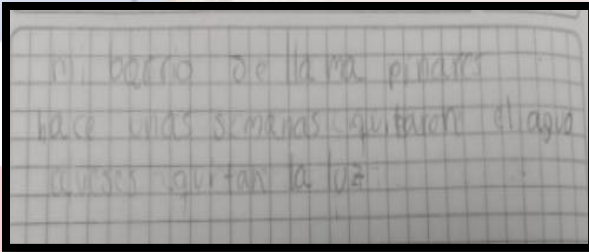 mi barrio se llama pinares
hace unas semanas quitaron el agua
aveses quitan la luz